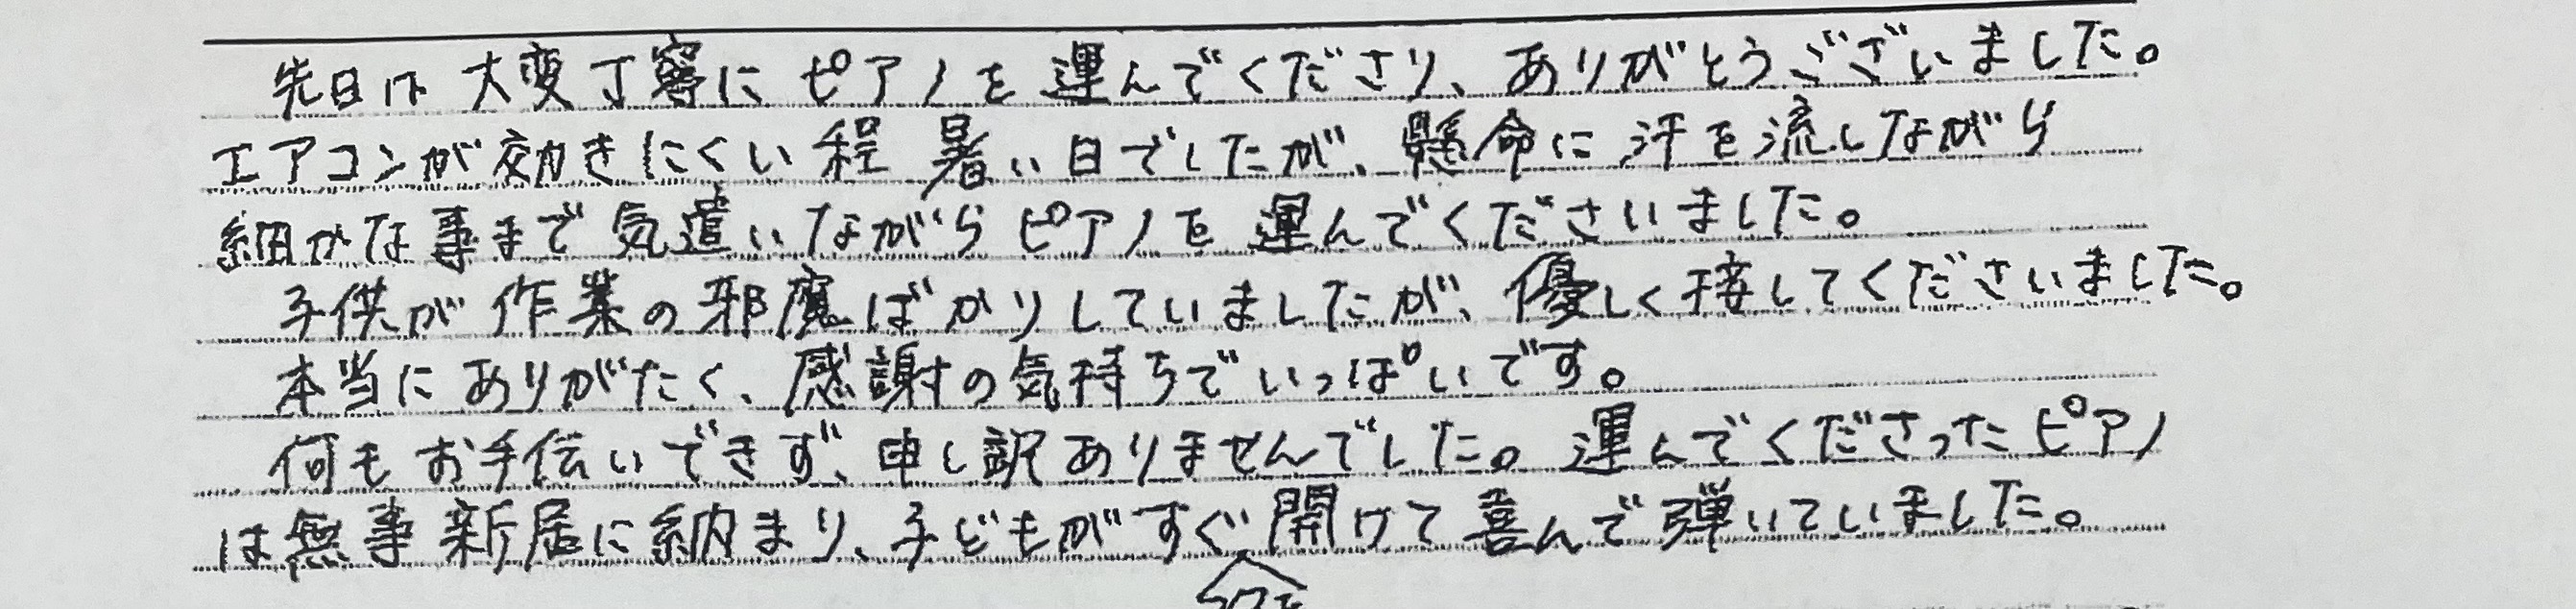 先日は大変丁寧にピアノを運んでくださり、ありがとうございました。
エアコンが効きにくい程暑い日でしたが、懸命に汗を流しながら
細かな事まで気遣いながらピアノを運んでくださいました。
子供が作業の邪魔ばかりしていましたが、優しく接してくださいました。
本当にありがたく、感謝の気持ちでいっぱいです。
何もお手伝いできず、申し訳ありませんでした。運んでくださったピアノ
は無事新居に納まり、子どもがすぐ開けて喜んで弾いていました。